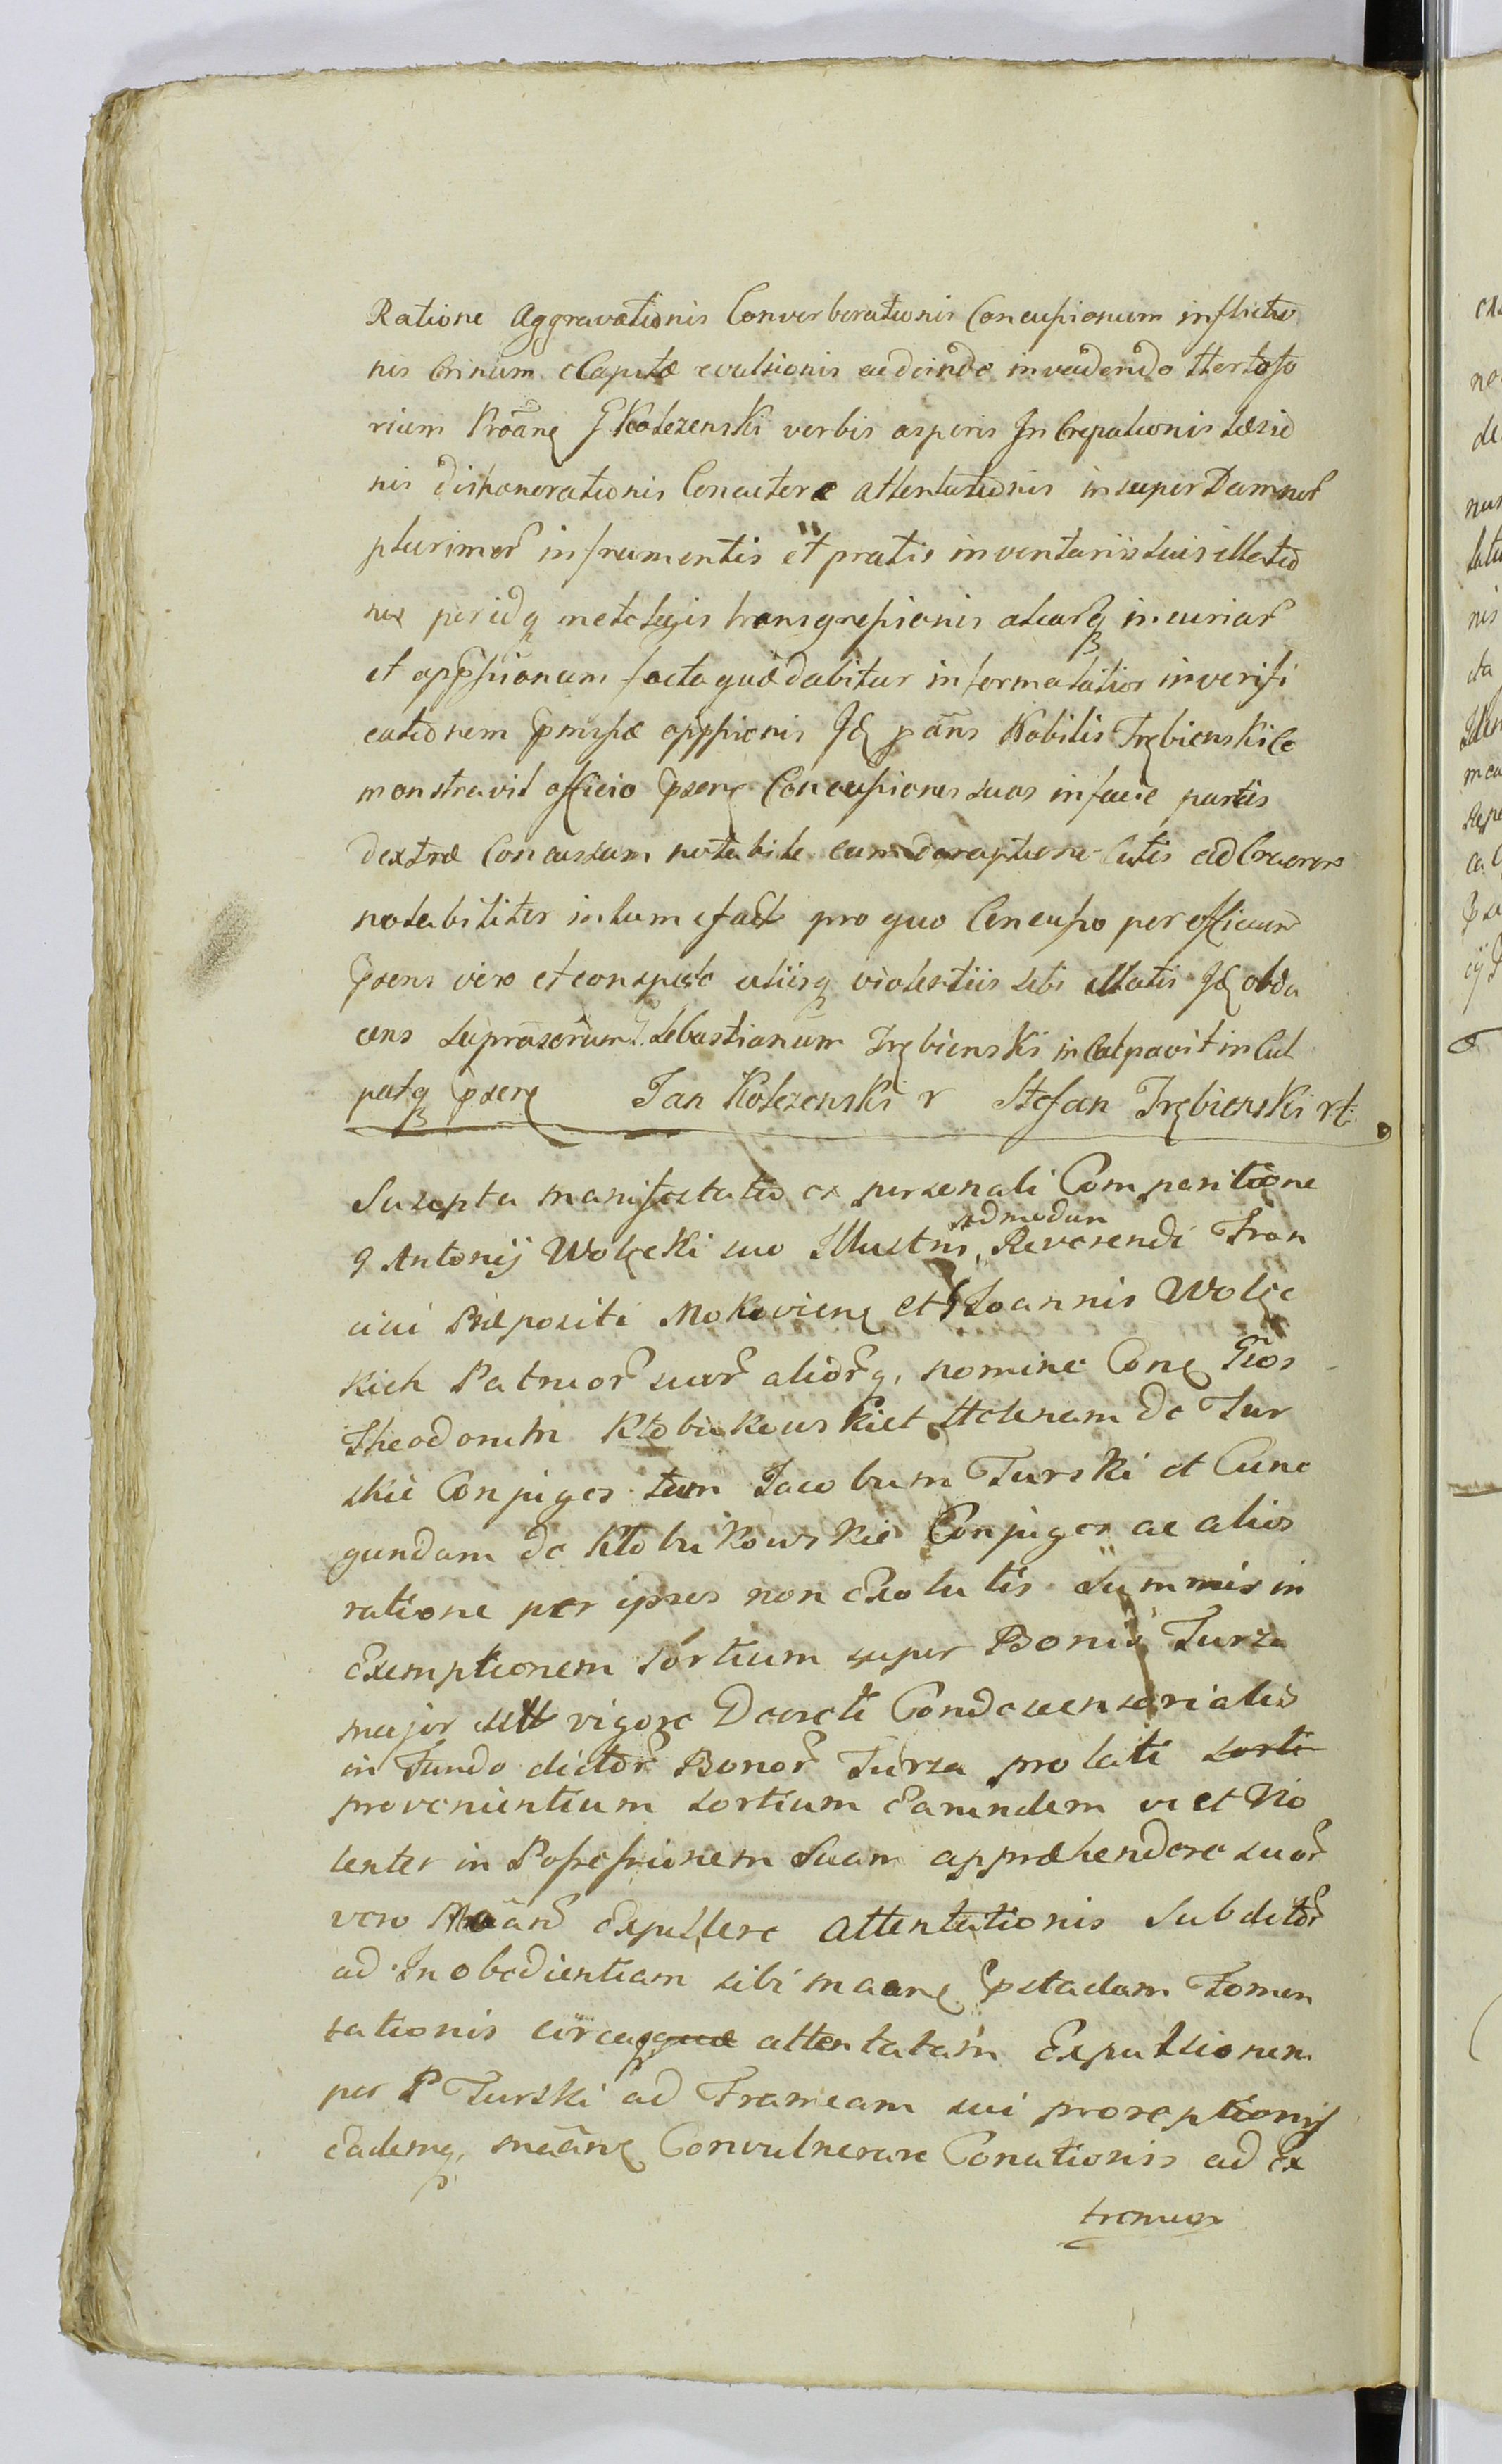 Ratione Aggravationis Converberationis Concussionum inflictio
nis Crinium e Capite evulsionis ac deinde invadendo
rium G Kotezenski verbis asperis Increpationis Læsio
nis dishonorationis Concutere attentationis insuper Damnor
plurimor in frumentis et pratis inventariis suis illatio
nis per idq metæ legis transgressionis aliarq iniuriar
et oppssionum facta quæ dabitur informatiae latior in verifi
cationem pmissæ oppssionis Id Nobilis Trębienski Co
monstravit officio psenę Concussiones suas in facie partis
dextræ Concussum notabile cum deruptione Cutis ad Cruorem
notabiliter intumefact pro quo Concusso per officium
psens viso et conspecto aliisq violentiis sibi illatis Id obdu
cens suprascrium G Sebastianum Trębienski inculpavit incul
patq psenę Jan Kotezenski r Stefan Trębienski rt
Suscepta manifestatio ex personali Comparitione
G Antonij Wolęcki suo Illustris, admodum Reverendi Fran
cisci Præpositi Mokoviens et G Joannis Wolęc
kich Patruor suor aliorq, nomine Conę Gsos
Theodorum Kłobukowski et Helenam de Tur
skie Conjuges tum Jacobum Turski et Cune
gundam de Kłobukowskie Conjuges ac alios
ratione per ipsos non Exolutis Summis in
Exemptionem Sortium super Bonis Turza
major sitt vigore Decreti Condescensorialis
in Fundo dictor Bonor Turza prolati sorti
provenientium sortium Earundem vi et Vio
lenter in Possessionem Suam appræhendere suor
vero Expellere attentationis Subditor
ad Inobedientiam sibi maanę pstadam Fomen
tationis circaq quæ attentatam Expulsionem
per P Turski ad Frameam sui proreptionis
Eademq, maanę Convulnerare Conationis ad Ex
tremum